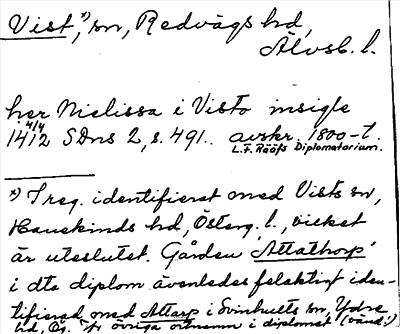 Vist,ˣ⁾ sn, Redvägs hd,
Älvsb. l.
her Nielissa i Visto insigle
1412 4/4 SDns 2, s. 491. avskr. 1800-t.
L. F. Rääfs Diplomatarium.
ˣ⁾ I reg. identifierat med Vists sn,
Hanekinds hd, Österg. l., vilket
är uteslutet. Gården 'Attathorp'
i dta diplom ävenledes felaktigt iden-
tifierad med Attarp i Svinhults sn, Ydre
hd, Ög. Fr övriga ortnamn i diplomet (vänd!)